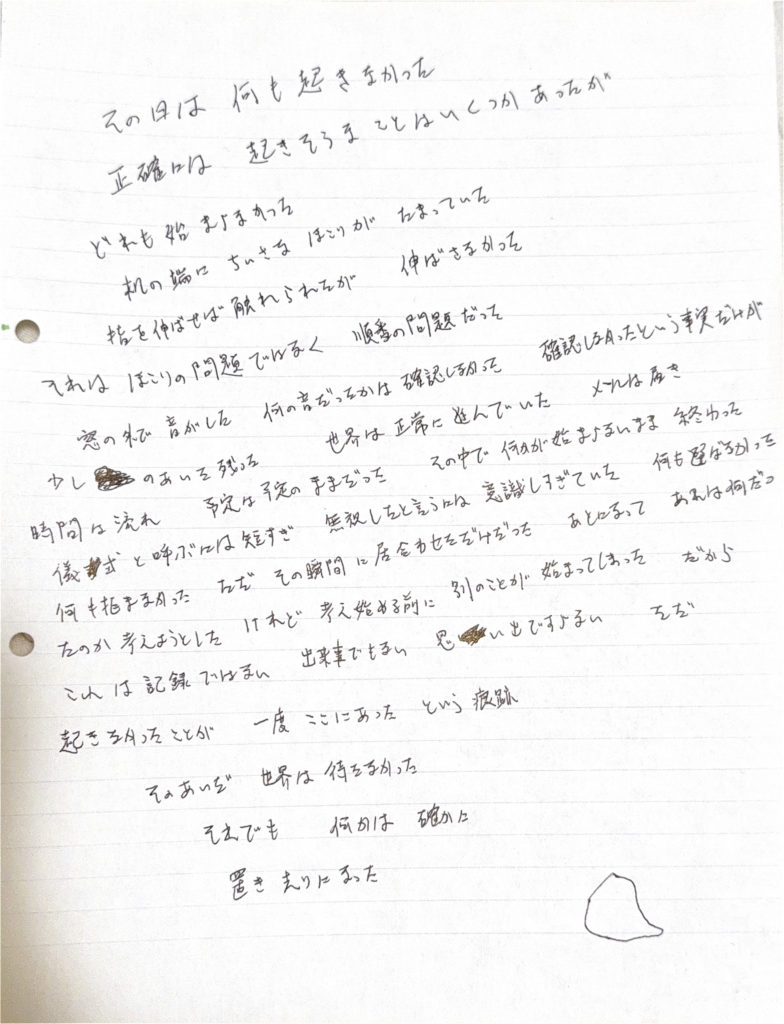 その日は 何も起きなかった
正確には 起きそうなことはいくつかあったが
どれも始まらなかった
机の端に ちいさな ほこりが たまっていた
指を伸ばせば触れられたが 伸ばさなかった
それは ほこりの問題ではなく 順番の問題だった
窓の外で 音がした 何の音だったかは 確認しなかった 確認しなかったという事実だけが
少し のあいだ残った 世界は正常に進んでいた メールは届き
時間は流れ 予定は予定のままだった その中で 何かが始まらないまま 終わった
儀式と呼ぶには短すぎ 無視したと言うには 意識しすぎていた 何も選ばなかった
何も拒まなかった ただ その瞬間に居合わせただけだった あとになって あれは何だっ
たのか 考えようとした けれど 考え始める前に 別のことが 始まってしまった だから
これは記録ではない 出来事でもない 思い出ですらない ただ
起きなかったことが 一度 ここにあった という 痕跡
そのあいだ 世界は待たなかった
それでも 何かは 確かに
置き去りになった